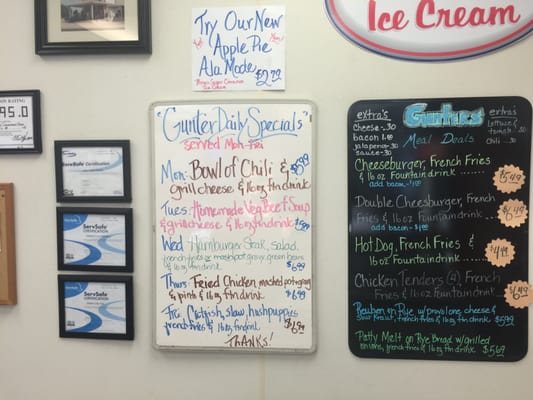 Ice Cream
Try Our New
Apple Pie
Ala Mode
$2.79
ON RATING
95.0
ServSafe Certification
ServSafe
CERTIFICATION
ServSafe
CERTIFICATION
"Gunter Daily Specials"
served Mon-Fri
Mon: Bowl of Chili &
grill cheese & 16oz ftn drink
Tues: Homemade Veg Beef Soup
& grill cheese & 16oz ftn drink
Wed Hamburger Steak, salad,
french fries or mashpot gravy, green beans
& 16oz ftn drink $6.99
Thurs Fried Chicken, mached pot+gravy
& pinto & 16oz ftn drink $6.99
Fri: Catfish, slaw, hushpuppies
french fries & 16oz ftn drink $6.99
THANKS!
extra's
cheese-.30
bacon 1.00
jalapenos
sauce-.30
Gunters
Meal Deals
extra's
lettuce &
tomato .30
chili .30
Cheeseburger, French Fries
& 16 oz Fountain drink ......
add bacon-$1.00
$5.49
Double Cheesburger, French
Fries & 16 oz Fountain drink ...
add bacon-$1.00
$6.49
Hot Dog, French Fries &
16 oz Fountain drink
$4.99
Chicken Tenders (4), French
Fries & 16oz Fountain drink
$6.49
Reuben on Rye w/provolone cheese &
sour kraut, french fries & 16oz ftn drink $5.99
Patty Melt on Rye Bread w/grilled
onions, french fries & 16oz ftn drink $5.69